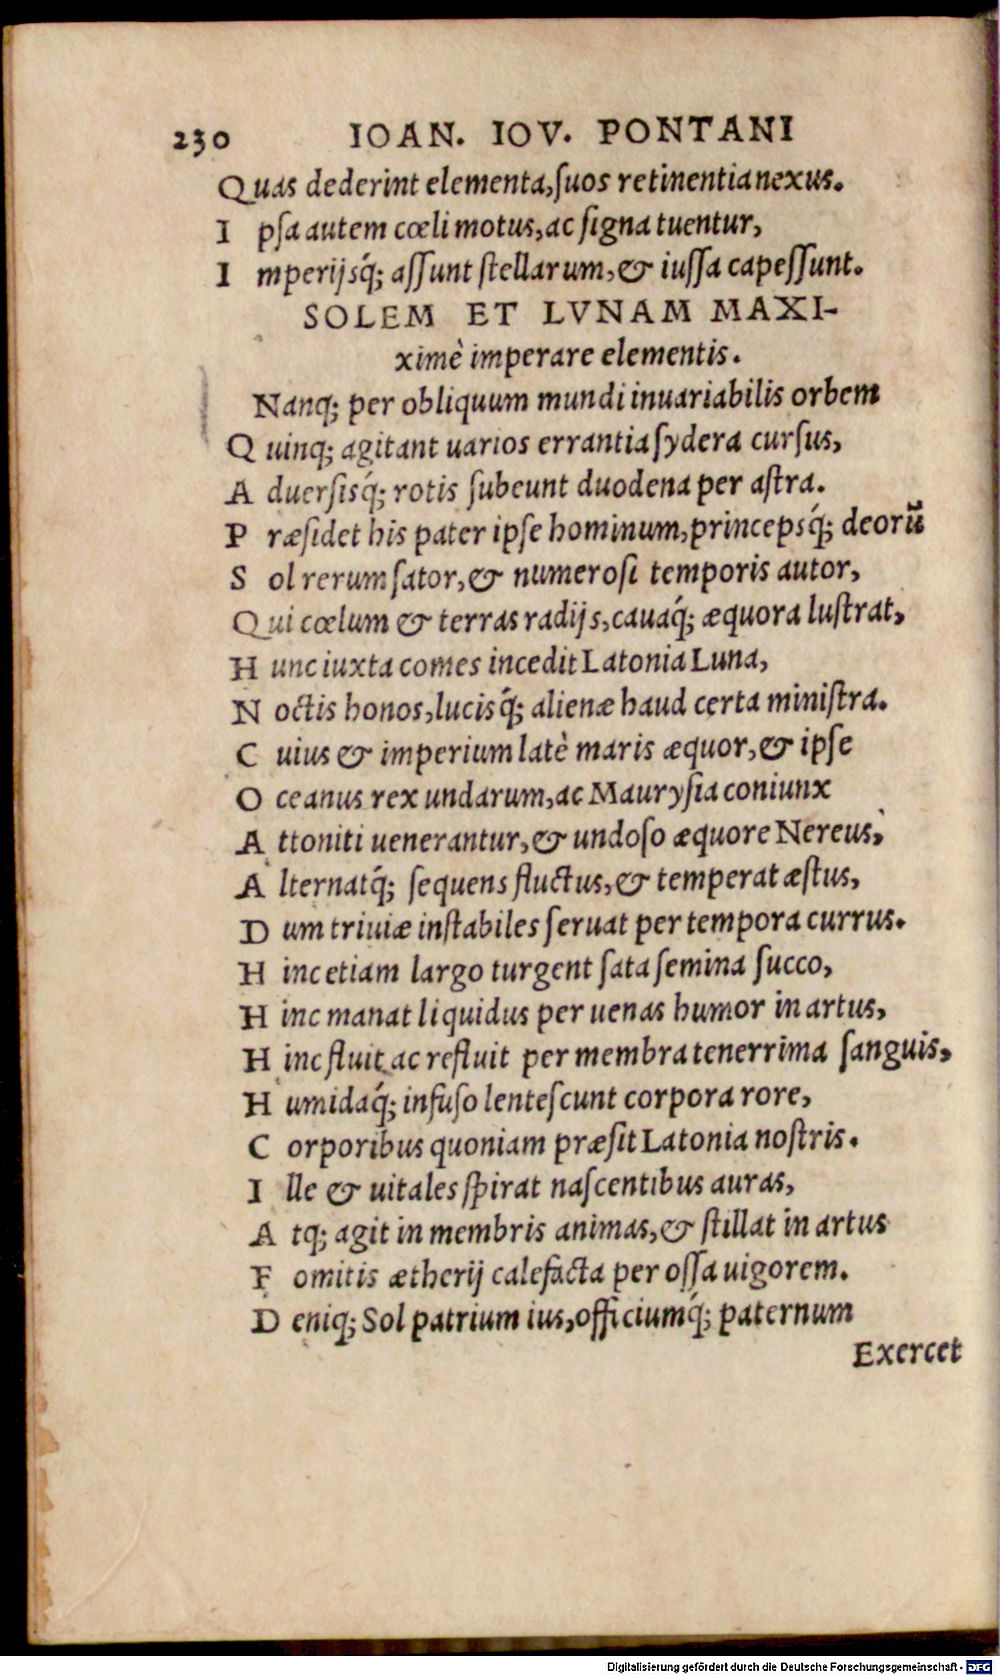 230 IOAN. IOV. PONTANI
Quas dederint elementa,ſuos retinentia nexus.
I pſa autem cœli motus,ac ſigna tuentur,
I mperijsq́; aſſunt ſtellarum,& iuſſa capeſſunt.
SOLEM ET LVNAM MAXI-
ximè imperare elementis.
Nanq; per obliquum mundi inuariabilis orbem
Q uinq; agitant uarios errantia ſydera curſus,
A duerſisq́; rotis ſubeunt duodena per aſtra.
P ræſidet his pater ipſe hominum,princepsq́; deorū
S ol rerum ſator,& numeroſi temporis autor,
Qui cœlum & terras radijs,cauaq́; æquora luſtrat,
H unc iuxta comes incedit Latonia Luna,
N octis honos,lucisq́; alienæ haud certa miniſtra.
C uius & imperium latè maris æquor,& ipſe
O ceanus rex undarum,ac Mauryſia coniunx
A ttoniti uenerantur,& undoſo æquore Nereus,
A lternatq́; ſequens fluctus,& temperat æſtus,
D um triuiæ inſtabiles ſeruat per tempora currus.
H inc etiam largo turgent ſata ſemina ſucco,
H inc manat liquidus per uenas humor in artus,
H inc fluit ac refluit per membra tenerrima ſanguis,
H umidaq́; infuſo lenteſcunt corpora rore,
C orporibus quoniam præſit Latonia noſtris.
I lle & uitales ſpirat naſcentibus auras,
A tq; agit in membris animas,& ſtillat in artus
F omitis ætherij calefacta per oſſa uigorem.
D eniq; Sol patrium ius,officiumq́; paternum
Exercet
Digitalisierung gefördert durch die Deutsche Forschungsgemeinschaft - DFG